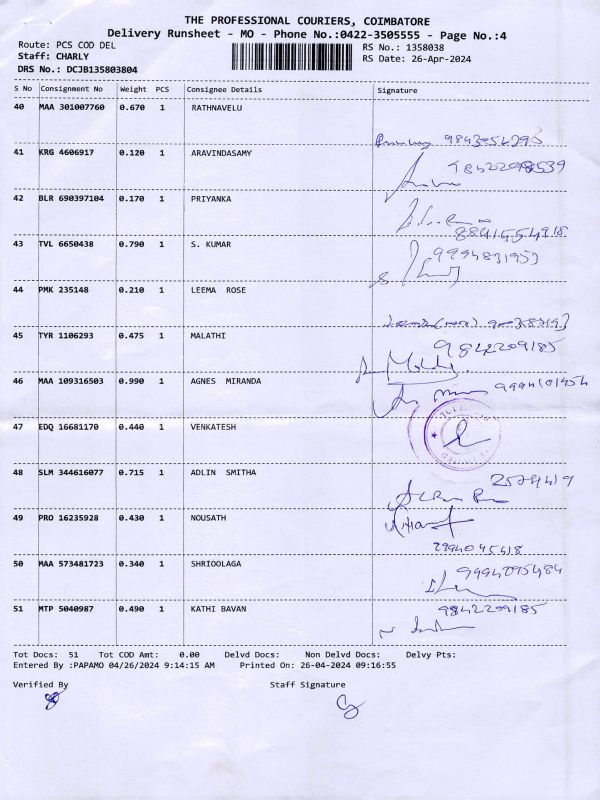 THE PROFESSIONAL COURIERS, COIMBATORE
Delivery Runsheet - MO - Phone No.:0422-3505555 - Page No.:4
Route: PCS COD DEL
RS No.: 1358038
Staff: CHARLY
RS Date: 26-Apr-2024
DRS No.: DCJB135803804
S No Consignment No Weight PCS Consignee Details Signature
40 MAA 301007760 0.670 1 RATHNAVELU
41 KRG 4606917 0.120 1 ARAVINDASAMY
42 BLR 690397104 0.170 1 PRIYANKA
43 TVL 6650438 0.790 1 S. KUMAR
9994831953
44 PMK 235148 0.210 1 LEEMA ROSE
45 TYR 1106293 0.475 1 MALATHI
9842209185
46 MAA 109316503 0.990 1 AGNES MIRANDA
9994101954
47 EDQ 16681170 0.440 1 VENKATESH
48 SLM 344616077 0.715 1 ADLIN SMITHA
49 PRO 16235928 0.430 1 NOUSATH
50 MAA 573481723 0.340 1 SHRIOOLAGA
9994095484
51 MTP 5040987 0.490 1 KATHI BAVAN
9842209185
Tot Docs: 51 Tot COD Amt: 0.00 Delvd Docs: Non Delvd Docs: Delvy Pts:
Entered By :PAPAMO 04/26/2024 9:14:15 AM Printed On: 26-04-2024 09:16:55
Verified By Staff Signature